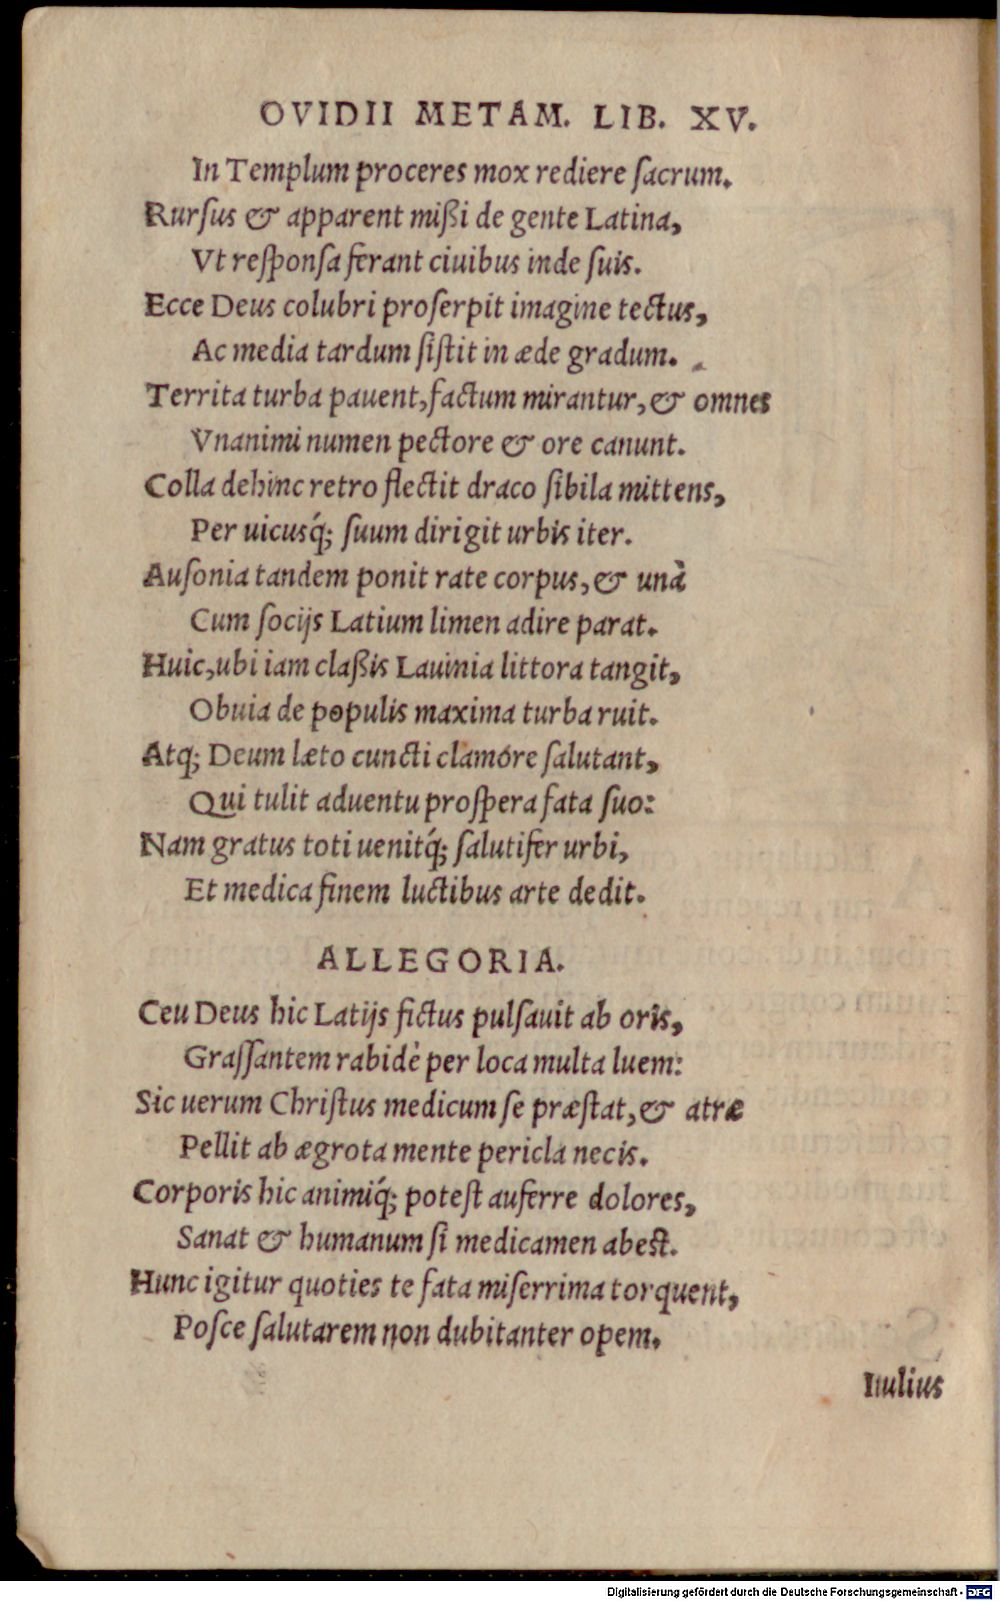 OVIDII METAM. LIB. XV.
In Templum proceres mox rediere ſacrum.
Rurſus & apparent mißi de gente Latina,
Vt reſponſa ferant ciuibus inde ſuis.
Ecce Deus colubri proſerpit imagine tectus,
Ac media tardum ſiſtit in æde gradum.
Territa turba pauent, factum mirantur, & omnes
Vnanimi numen pectore & ore canunt.
Colla dehinc retro flectit draco ſibila mittens,
Per uicusq́; ſuum dirigit urbis iter.
Auſonia tandem ponit rate corpus, & unà
Cum ſocijs Latium limen adire parat.
Huic, ubi iam claßis Lauinia littora tangit,
Obuia de populis maxima turba ruit.
Atq; Deum læto cuncti clamóre ſalutant,
Qui tulit aduentu proſpera fata ſuo:
Nam gratus toti uenitq́; ſalutifer urbi,
Et medica finem luctibus arte dedit.
ALLEGORIA.
Ceu Deus hic Latijs fictus pulſauit ab oris,
Graſſantem rabidè per loca multa luem:
Sic uerum Chriſtus medicum ſe præſtat, & atræ
Pellit ab ægrota mente pericla necis.
Corporis hic animiq́; poteſt auferre dolores,
Sanat & humanum ſi medicamen abeſt.
Hunc igitur quoties te fata miſerrima torquent,
Poſce ſalutarem non dubitanter opem.
Iulius
Digitalisierung gefördert durch die Deutsche Forschungsgemeinschaft - DFG